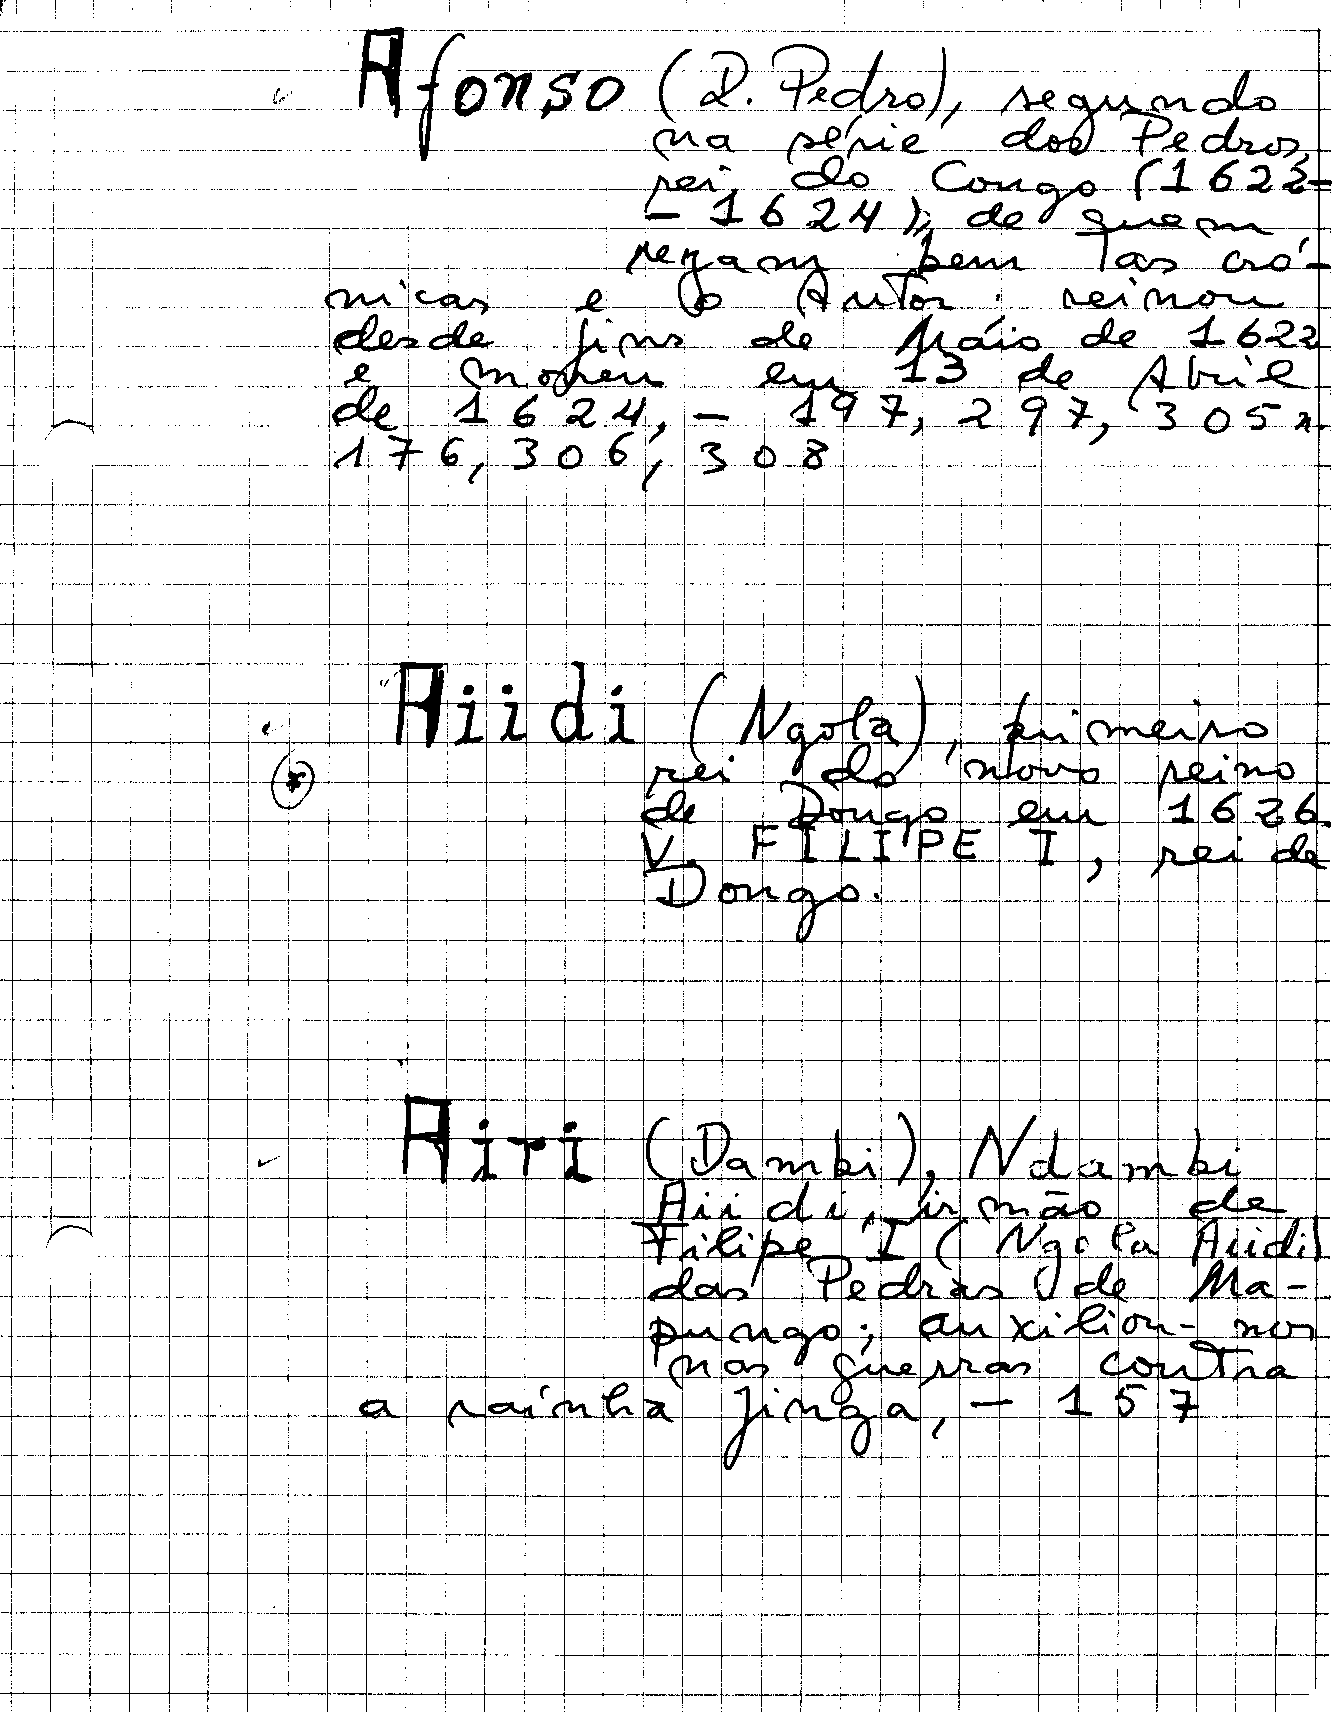 Afonso (D. Pedro), segundo
na série dos Pedros,
rei do Congo (1622-
- 1624), de quem
rezam bem as cró-
nicas e o Autor: reinou
desde fins de Máio de 1622
e morreu em 13 de Abril
de 1624, - 197, 297, 305n.
176, 306, 308
Aiidi (Ngola), primeiro
rei do novo reino
de Dongo em 1626.
V. FILIPE I, rei de
Dongo.
Airi (Dambi), Ndambi
Aiidi, irmão de
Filipe I (Ngola Aiidi)
das Pedras de Ma-
pungo; auxiliou-nos
nas guerras contra
a raínha Jinga, - 157